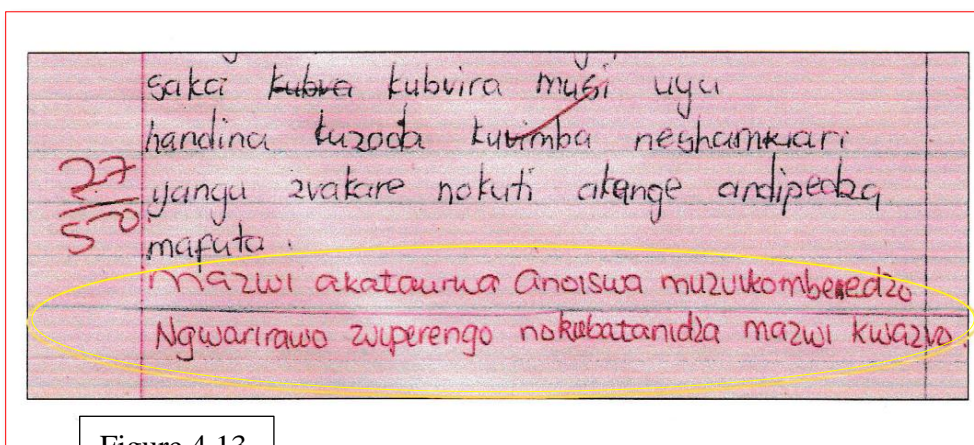 saka kubva kubvira musi uyu
handina kuzoda kuvimba neshamwari
27/50
yangu zvakare nokuti akange andipedza
mafuta.
Mazwi akataurwa anoiswa muzvikomberedzo
Ngwarirawo zviperengo nokubatanidza mazwi kwazvo.
Figure 4.13